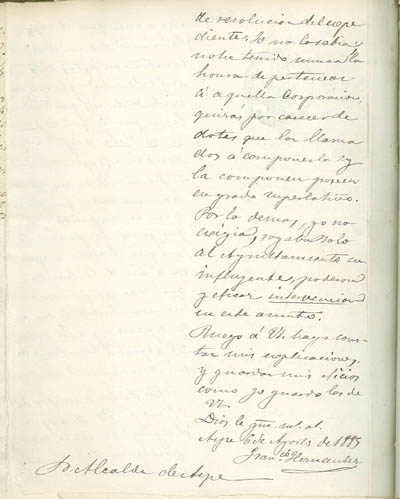 de resolucion del espe
diente. Yo no lo sabia;
no he tenido nunca la
honra de pertenecer
á aquella Corporacion,
quizás por carecer de
dotes que los llama
dos á componerla y
la componen poseen
en grado superlativo.
Por lo demas, yo no
exigia, rogaba solo
al Ayuntamiento su
influyente, poderosa
y eficaz intervencion
en este asunto.
Ruego á V. haga cons-
tar mis explicaciones
y guardar mis oficios
como yo guardo los de
V.
Dios le gue. m. a.
6 de Agosto de 1885
Franco. Hernandez
Sr. Alcalde de